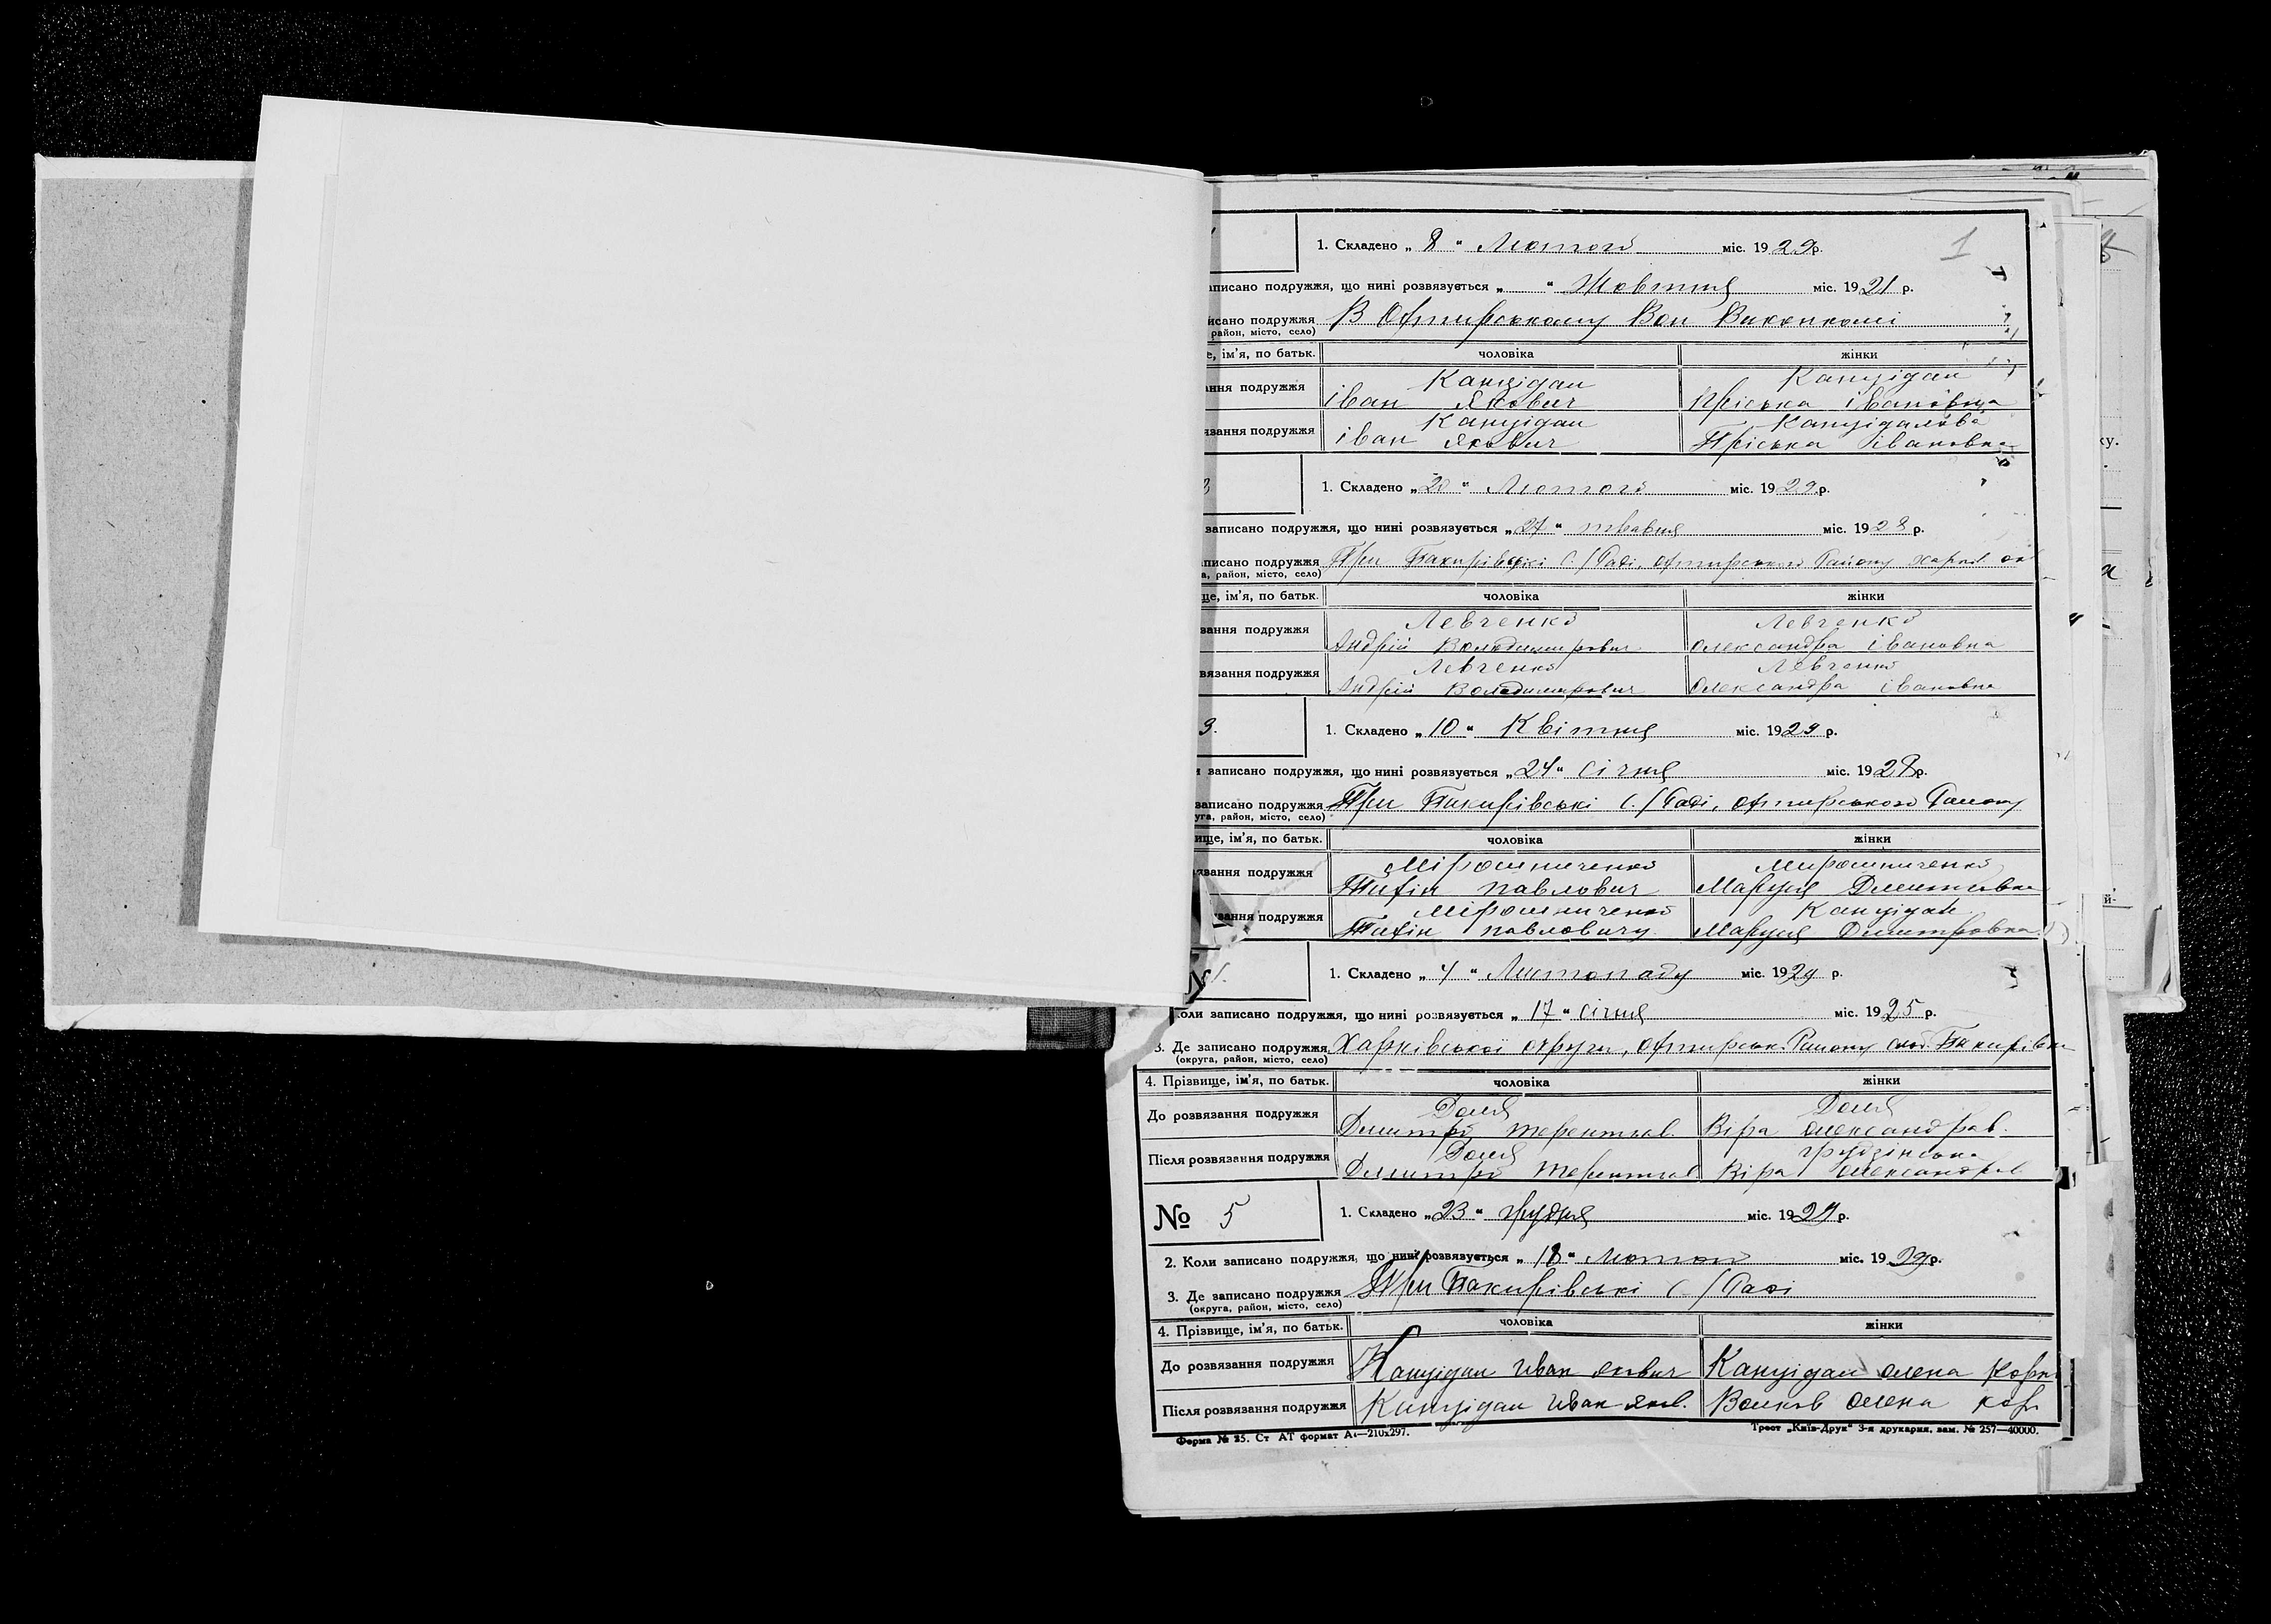 1
1. Складено „ 8 “ Лютого міс. 1929р.
аписано подружжя, що нині розвязується „ “ Жовтня міс. 1921 р.
исано подружжя В Охтирському Вол Виконкомі
район, місто, село)
е, ім'я, по батьк. чоловіка жінки
ання подружжя Канцідал Канцідал
іван Якович Пріська івановна
язання подружжя Канцідал Канцідалова
іван Якович Пріська івановна
1. Складено „ 20 “ Лютого міс. 1929.р.
записано подружжя, що нині розвязується „ 27 “ травня міс. 1928 р.
писано подружжя При Бакирівські С./Раді, Охтирського Району Харків ок
а, район, місто, село)
ще, ім'я, по батьк. чоловіка жінки
зання подружжя Левченко Левченко
Андрій Володимирович Олександра івановна
вязання подружжя Левченко Левченко
Андрій Володимирович Олександра івановна
3. 1. Складено „ 10 “ Квітня міс. 1929 р.
и записано подружжя, що нині розвязується „ 24 “ Січня міс. 1928р.
записано подружжя При Бакирівські С./Раді, Охтирського Району
уга, район, місто, село)
ище, ім'я, по батьк. чоловіка жінки
язання подружжя Мірошниченко Мирошниченко
Тихін павлович Маруся
ування подружжя Мірошниченко Канцідал
Тихін павловичу Маруся Дмитровна
№ 1. Складено „ 4 “ Листопаду міс. 1929 р.
коли записано подружжя, що нині розвязується „ 17 “ Січня міс. 1925 р.
3. Де записано подружжя Харківської округи, Охтирськ. Району слоб. Бакирівки
(округа, район, місто, село)
4. Прізвище, ім'я, по батьк. чоловіка жінки
До розвязання подружжя Доля Доля
Дмитро Терентьєв. Віра Олександров.
Після розвязання подружжя Доля Грудзінська
Дмитро Терентьєв Віра Олександров
№ 5 1. Складено „ 23 “ Грудня міс. 1929р.
2. Коли записано подружжя, що нині розвязується „ 18 “ Лютого міс. 1929р.
3. Де записано подружжя При Бакирівські С./Раді
(округа, район, місто, село)
4. Прізвище, ім'я, по батьк. чоловіка жінки
До розвязання подружжя Канцідал Иван Якович Канцідал Олена Корн
Після розвязання подружжя Канцідал Иван Яков. Волков Олена кор
Форма № 25. Ст АТ формат А₄—210х297. Трест „Київ-Друк“ 3-я друкарня, зам. № 257—40000.